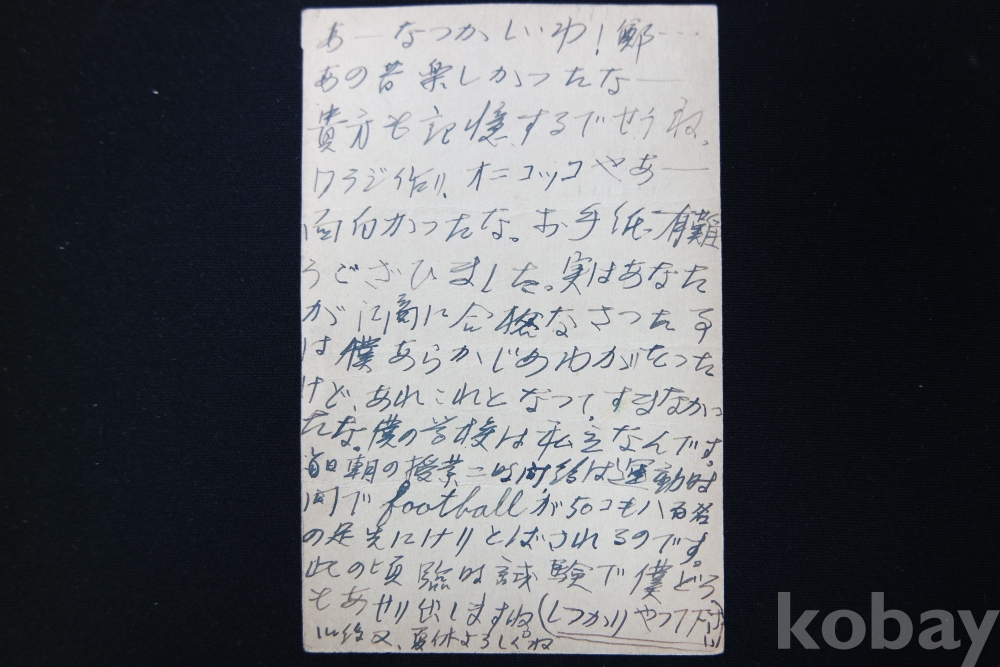 あーなつかしいわ！鄭……
あの昔楽しかったなー
貴方も記憶するでせうね。
ワラジ作り、オニコッコやあー
面白かったな。お手紙有難
うござひました。実はあなた
が仁商に合格なさつた事
は僕あらかじめわがたつた
けど、あれこれとなって、すまなかっ
たな。僕の学校は私立なんです。
毎日朝の授業二時間終は運動時
間でfootballが50コも八百名
の足先にけりとばされるのです。
此の頃臨時試験で僕どう
もあせり出しますね(しつかりやって下さい)
以後又、夏休よろしくね
kobay